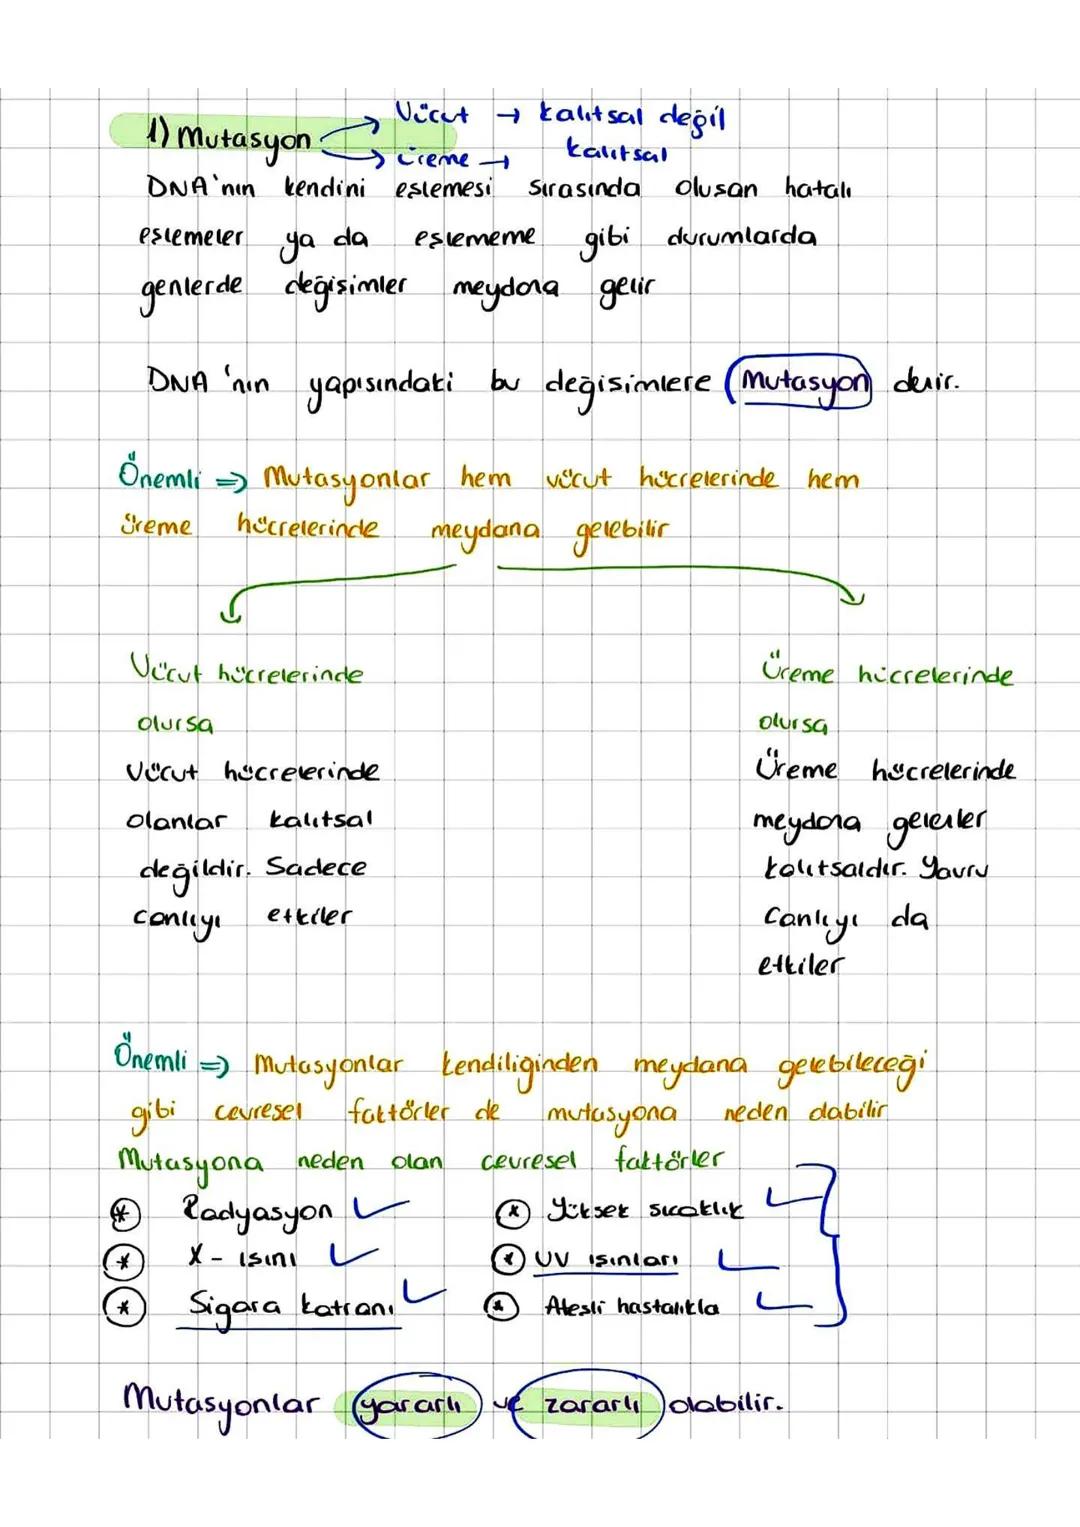 1) Mutasyon → Vücut → kalıtsal değil
→ üreme → kalıtsal
DNA'nın kendini eşlemesi sırasında oluşan hatalı
eşlemeler ya da eşlememe gibi durumlarda
genlerde değişimler meydana gelir
DNA'nın yapısındaki bu değişimlere Mutasyon denir.
Önemli ⇒ Mutasyonlar hem vücut hücrelerinde hem
üreme hücrelerinde meydana gelebilir
Vücut hücrelerinde
olursa
Vücut hücrelerinde
olanlar kalıtsal
değildir. Sadece
canlıyı etkiler
Üreme hücrelerinde
olursa
Üreme hücrelerinde
meydana gelenler
kalıtsaldır. Yavru
Canlıyı da
etkiler
Önemli ⇒ Mutasyonlar kendiliğinden meydana gelebileceği
gibi çevresel faktörler de mutasyona neden olabilir
Mutasyona neden olan çevresel faktörler
* Radyasyon ✓
* X-ışını ✓
* Sigara katranı ✓
* Yüksek sıcaklık ✓
* UV ışınları ✓
* Ateşli hastalıkla ✓
Mutasyonlar yararlı ve zararlı olabilir.